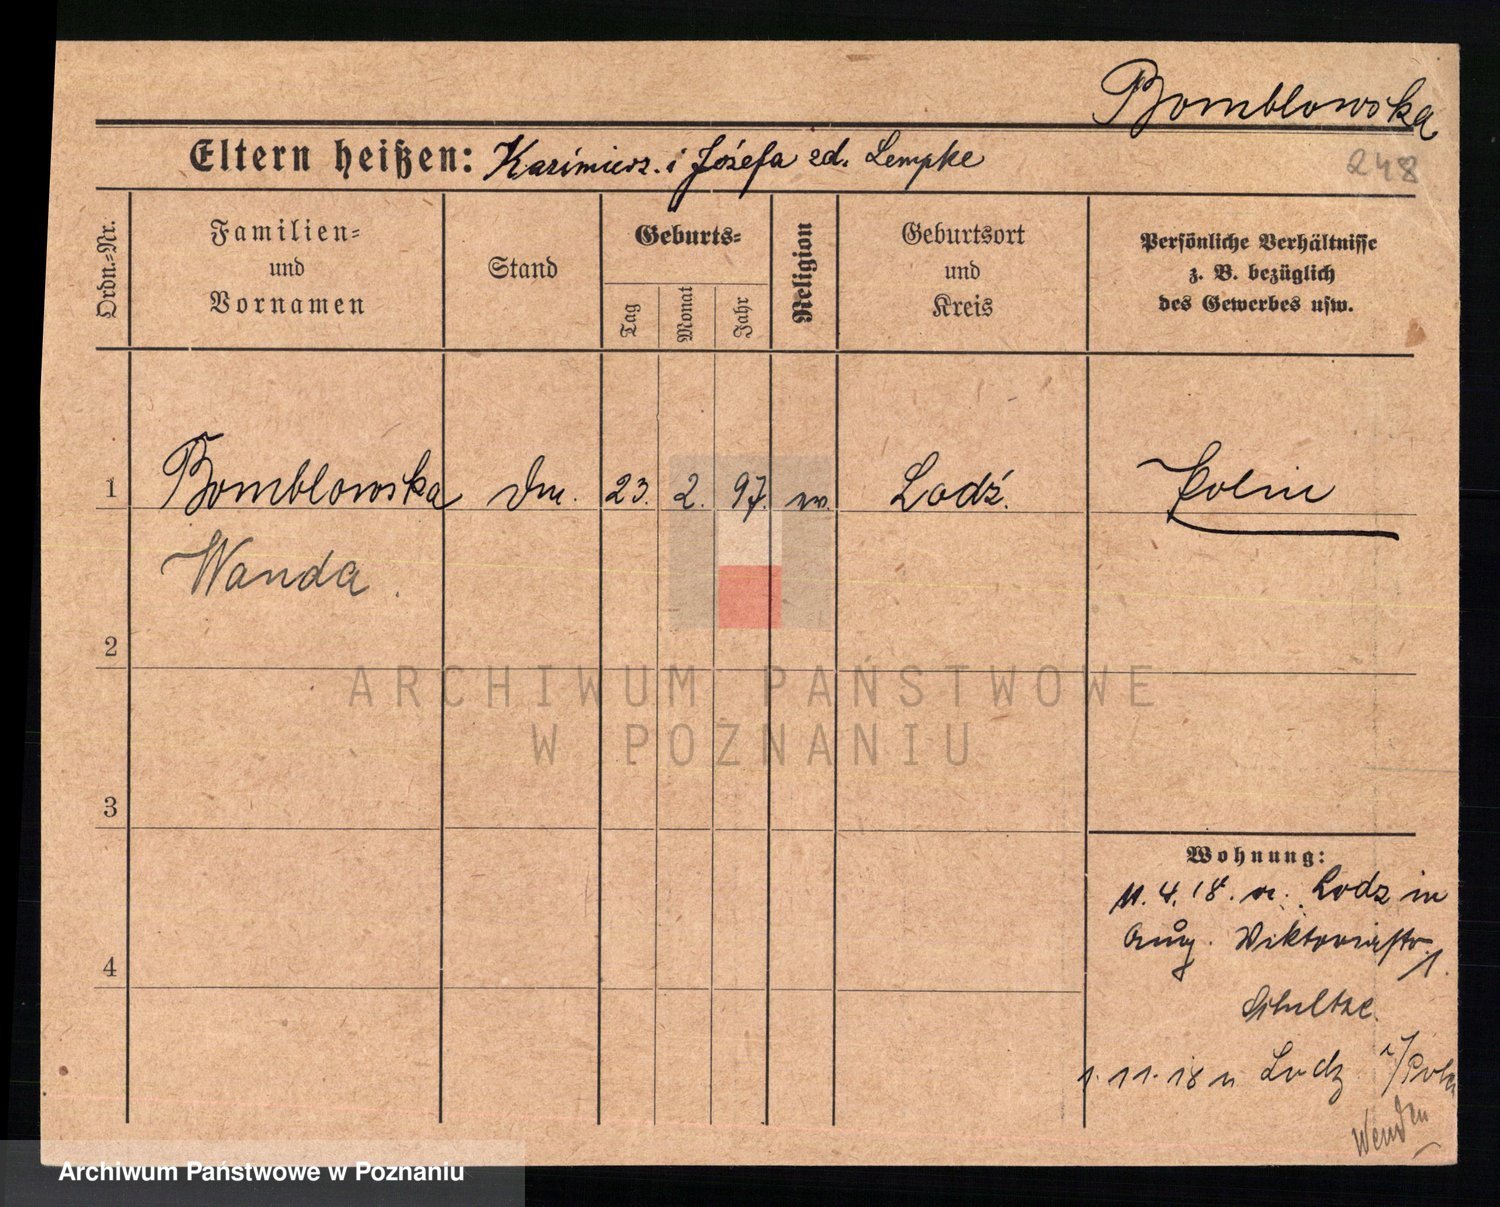 Bomblowska
248
Eltern heißen: Kazimierz. i Józefa zd. Lempke
Ordn.-Nr.
Familien-
und
Vornamen
Stand
Geburts-
Tag
Monat
Jahr
Religion
Geburtsort
und
Kreis
Persönliche Verhältnisse
z. B. bezüglich
des Gewerbes usw.
1 Bomblowska 23. 2. 97. Lodź.
Wanda.
2
3
4
ARCHIWUM PAŃSTWOWE
W POZNANIU
Wohnung:
11. 4. 18. Lodz in
Aug. Viktoriastr. 1.
Schultze.
1. 11. 18 n Lodz i/Poln
Wenden
Archiwum Państwowe w Poznaniu